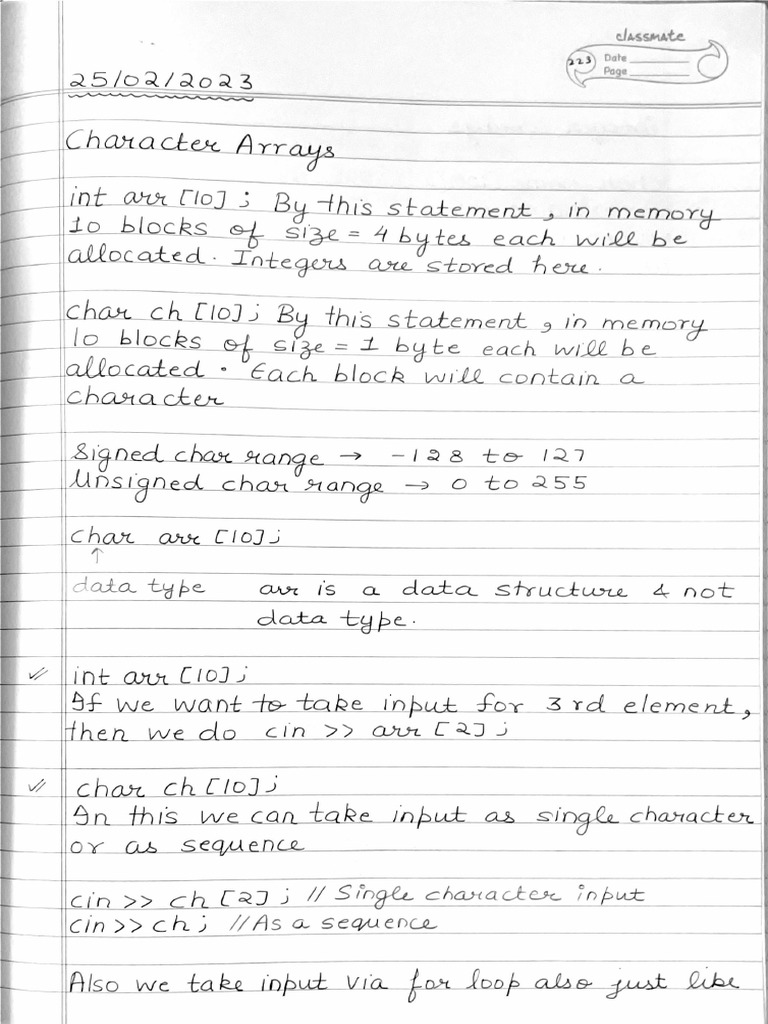 classmate
25/02/2023
223 Date
Page
Character Arrays
int arr [10] ; By this statement, in memory
10 blocks of size = 4 bytes each will be
allocated. Integers are stored here.
char ch [10] ; By this statement, in memory
10 blocks of size = 1 byte each will be
allocated. Each block will contain a
character
Signed char range → -128 to 127
Unsigned char range → 0 to 255
char arr [10] ;
↑
data type arr is a data structure & not
data type.
✓ int arr [10] ;
If we want to take input for 3rd element,
then we do cin >> arr [2] ;
✓ char ch [10] ;
In this we can take input as single character
or as sequence
cin >> ch [2] ; // Single character input
cin >> ch ; // As a sequence
Also we take input via for loop also just like